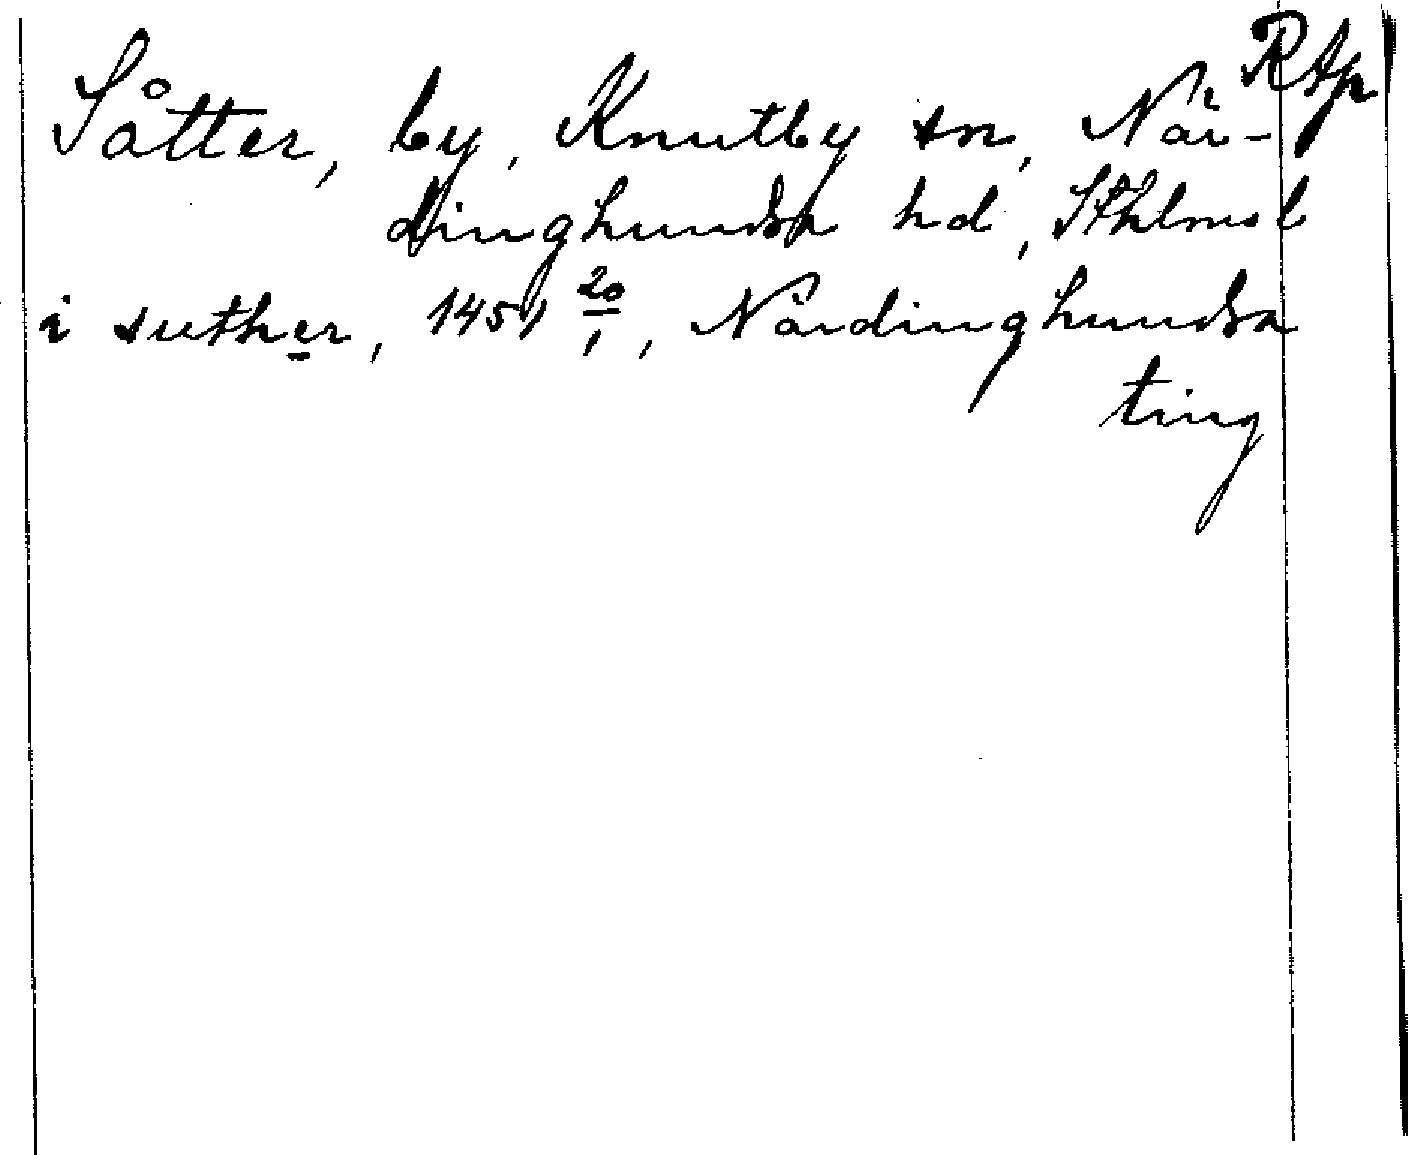 RAp
Såtter, by, Knutby sn, När-
dinghundra hd, Sthlms l
i suther, 1451 20/1, Närdinghundra
ting